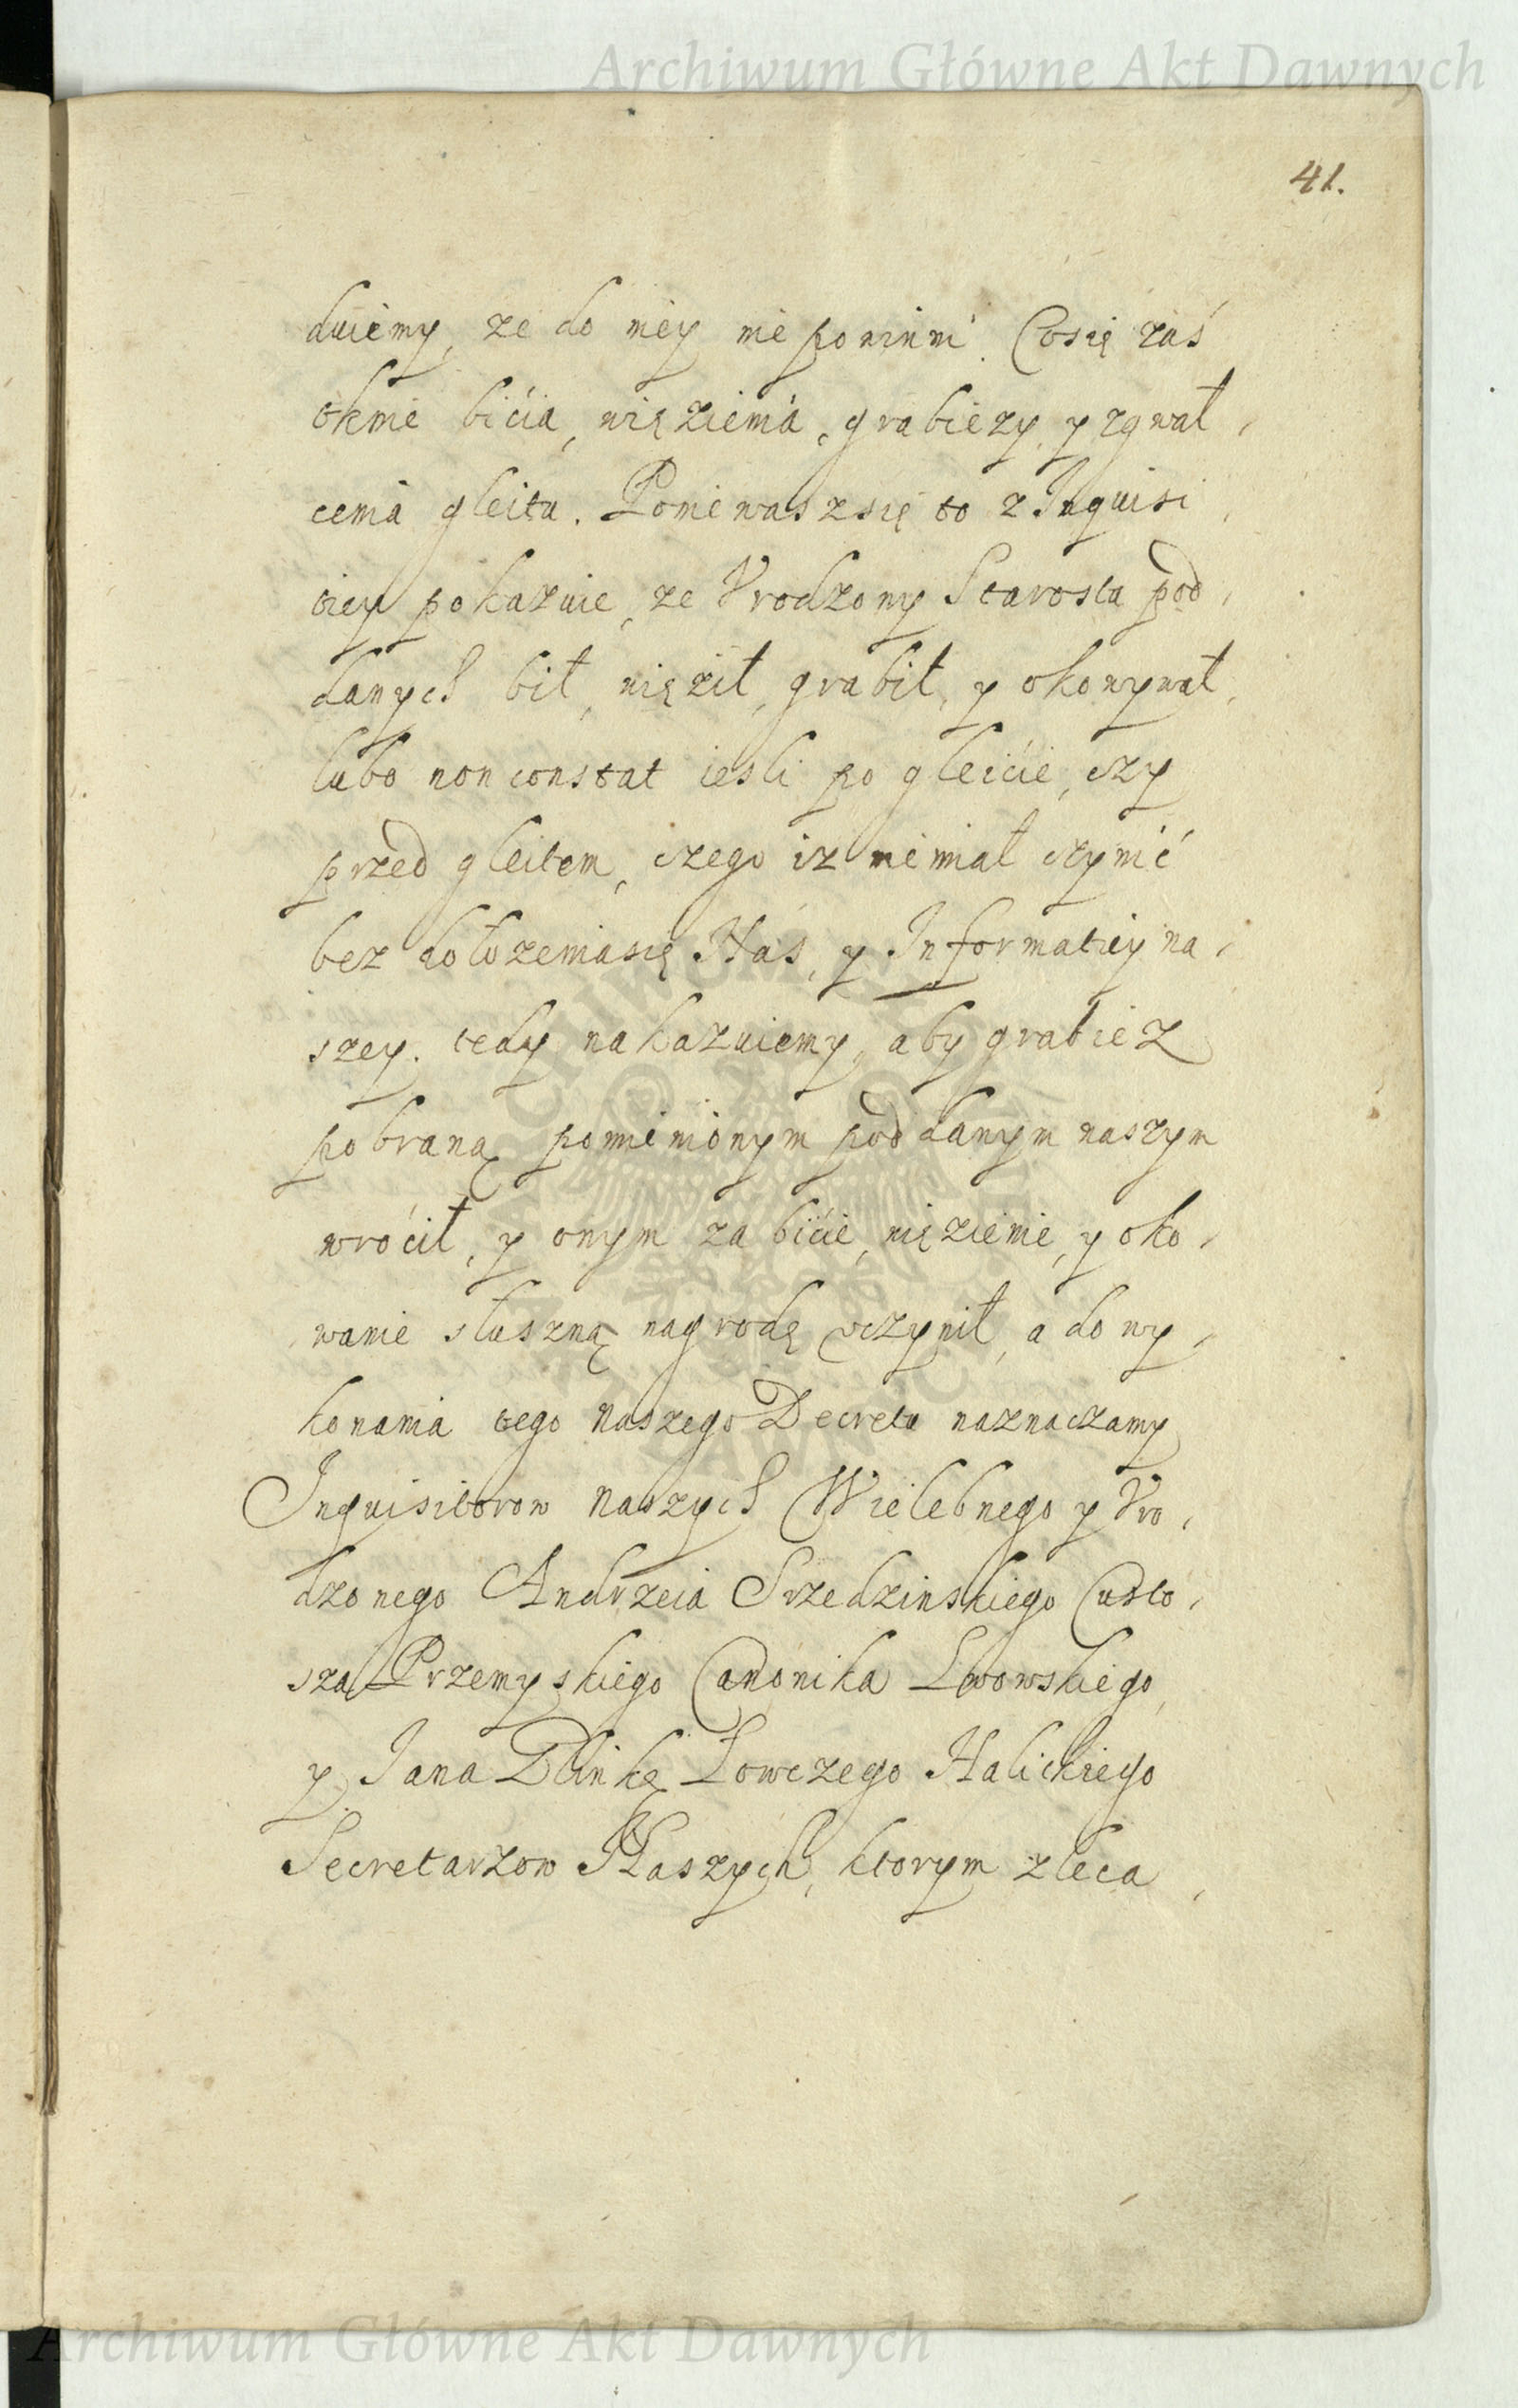 Archiwum Główne Akt Dawnych
41.
duiemy, ze do niey nie powinni. Co się zaś
tknie bicia, więzienia, grabiezy, y zgwał,
cenia gleitu. Poniewasz się to z Inquisi,
tiey pokazuie, ze Vrodzony Starosta pod,
danych bił, więził, grabił, y okowywał,
lubo non constat iesli po gleicie, czy
przed gleitem, czego iz nie miał czynić
bez dołozenia się Nas, y Informatiey na,
szey. tedy nakazuiemy, aby grabiez
pobraną pomienionym poddanym naszym
wrócił, y onym za bicie, więzienie, y oko,
wanie słuszną nagrodę vczynił, a do wy,
konania tego naszego Decretu naznaczamy
Inquisitorow naszych Wielebnego y Vro,
dzonego Andrzeia Srzedzinskiego Custo,
sza Przemyskiego Canonika Lwowskiego,
y Jana Dlinkę Łowczego Halickiego
Secretarzow Naszych, ktorym zleca,
Archiwum Główne Akt Dawnych